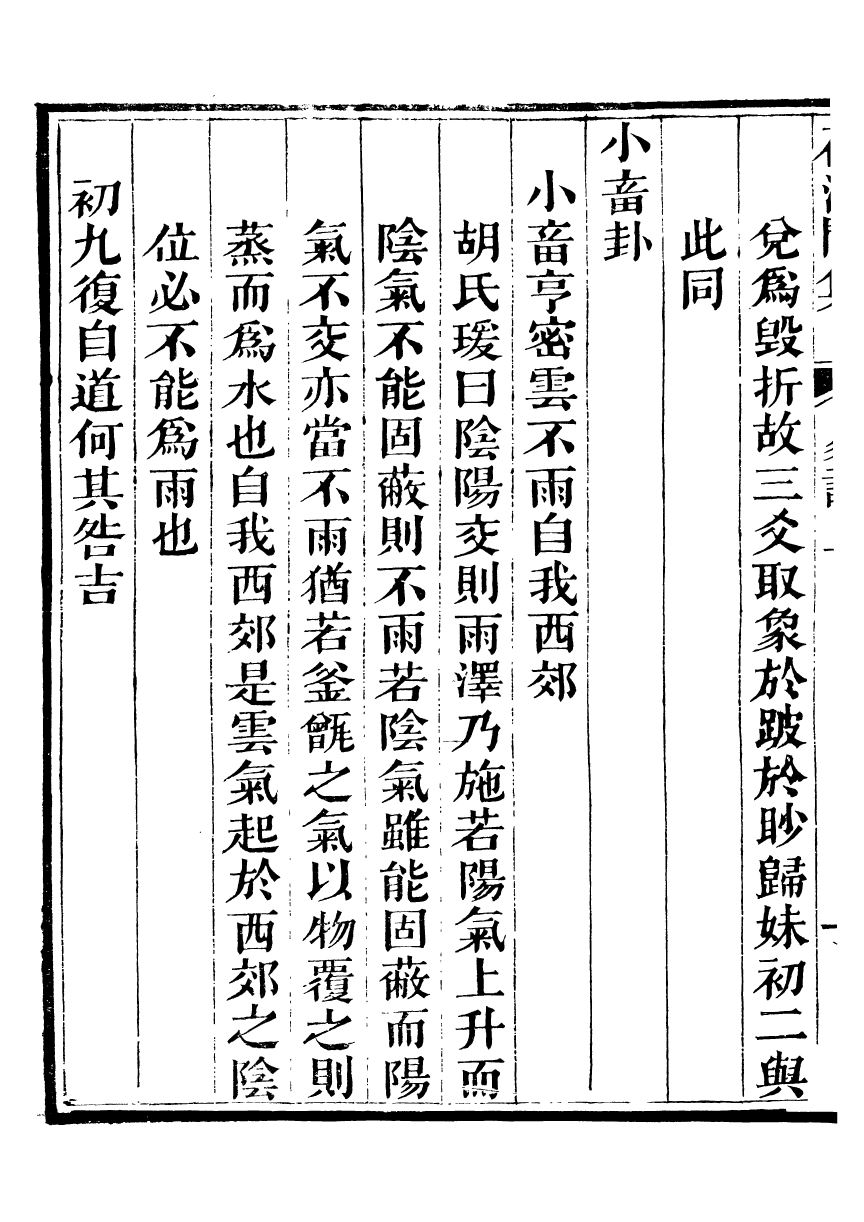 兌爲毀折故三爻取象於跛於眇歸妹初二與
此同
小畜卦
小畜亨密雲不雨自我西郊
胡氏瑗曰陰陽交則雨澤乃施若陽氣上升而
陰氣不能固蔽則不雨若陰氣雖能固蔽而陽
氣不交亦當不雨猶若釜甑之氣以物覆之則
蒸而爲水也自我西郊是雲氣起於西郊之陰
位必不能爲雨也
初九復自道何其咎吉